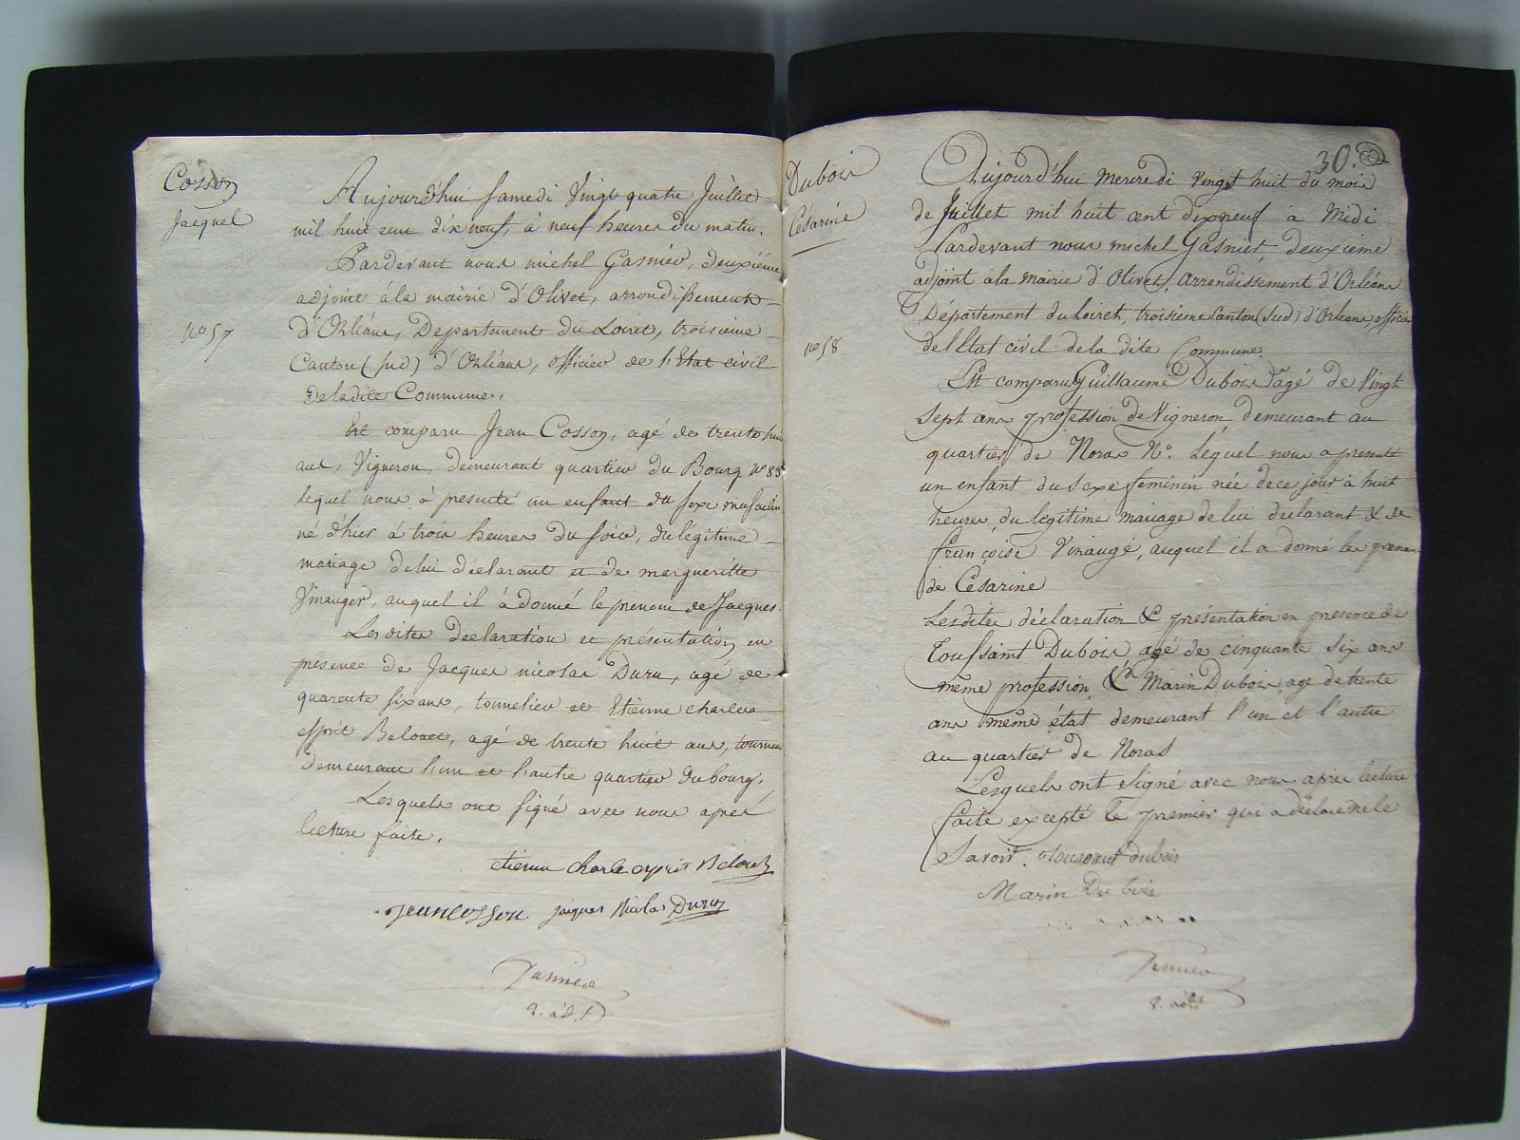 Cosson
Jacques
n° 57
Aujourd'hui samedi Vingt quatre Juillet
mil huit cent dix neuf, à neuf heures du matin.
Pardevant nous michel Gasnier, deuxième
adjoint à la mairie d'Olivet, arrondissement
d'Orléans, Département du Loiret, troisieme
Canton (sud) d'Orléans, officier de l'Etat civil
de ladite Commune.
Est comparu Jean Cosson, agé de trente huit
ans, Vigneron, demeurant quartier du Bourg n° 88
lequel nous à presenté un enfant du sexe masculin
né d'hier à trois heures du soir, du légitime
mariage de lui déclarant et de margueritte
Vinauger, auquel il à donné le prenom de Jacques.
Les dites declaration et présentation en
présence de Jacques nicolas Duru, agé de
quarante six ans, tonnelier et Etienne charles
esprit Belouet, agé de trente huit ans,
demeurant l'un et l'autre quartier du bourg.
Lesquels ont signé avec nous après
lecture faite.
etienne charle esprit Belouet
jean cosson jacques Nicolas Duru
Gasnier
2. adj.
30.
Dubois
Césarine
n° 58
Aujourd'hui mercredi vingt huit du mois
de Juillet mil huit cent dixneuf à Midi
Pardevant nous michel Gasnier deuxième
adjoint à la mairie d'Olivet, arrondissement d'Orléans
Département du Loiret, troisieme Canton (sud) d'Orléans, officier
de l'Etat civil de la dite Commune.
Est comparu Guillaume Dubois agé de Vingt
sept ans profession de Vigneron demeurant au
quartier de Noras N°. Léquel nous a presenté
un enfant du sexe feminin née de ce jour à huit
heures du légitime mariage de lui déclarant & de
françoise Vinaugé, auquel il a donné le prenom
de Césarine
Lesdites déclaration & présentation en presence de
Toussaint Dubois agé de cinquante six ans
même profession & Marin Dubois age de trente
ans même état demeurant l'un et l'autre
au quartier de Noras
Lesquels ont signé avec nous après lecture
faite excepté le premier qui a déclaré ne le
Savoir. Toussaint dubois
Marin Du bois
Gasnier
2. adj.